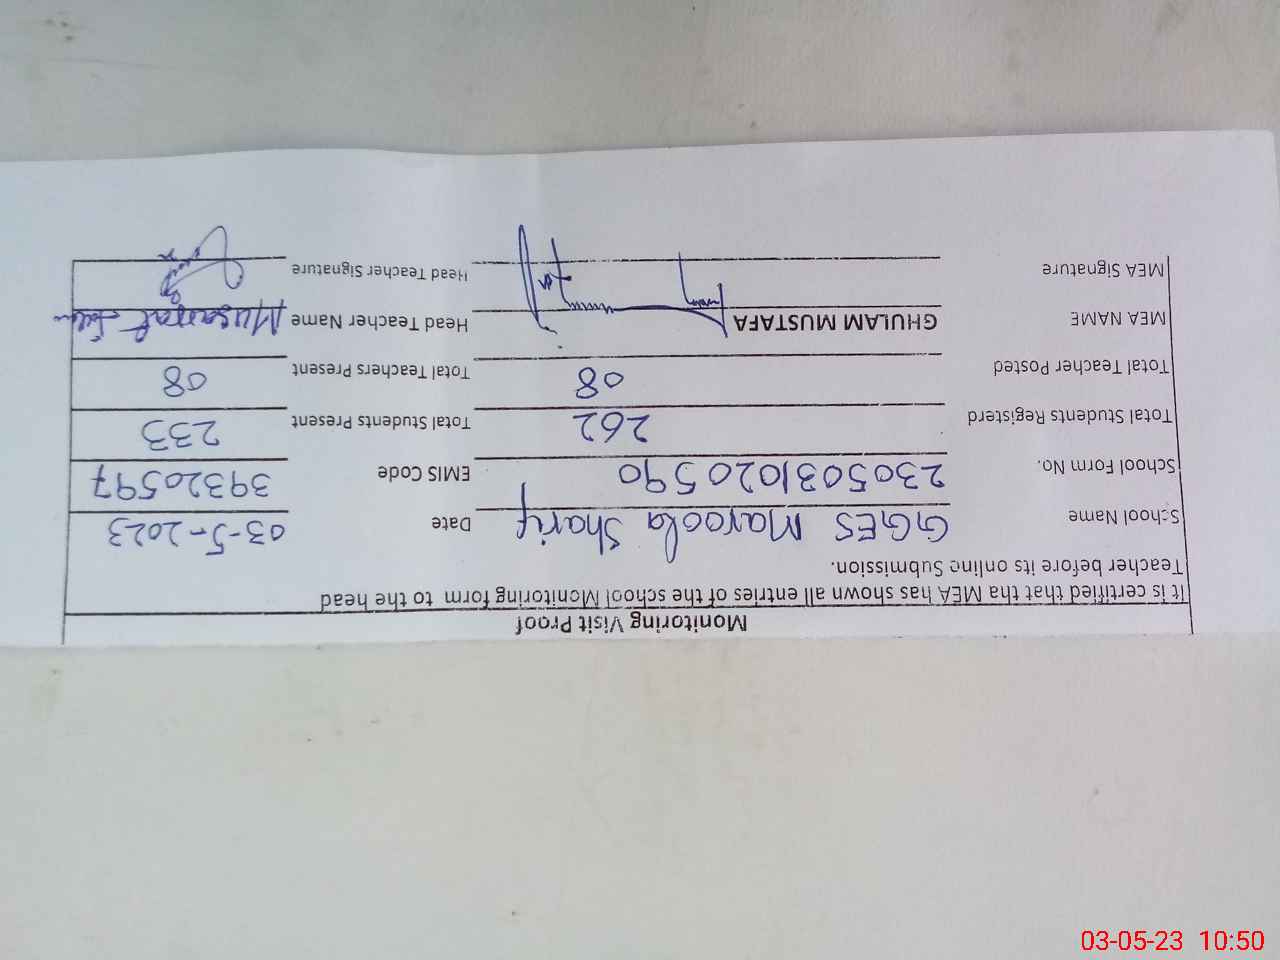 Monitoring Visit Proof
It is certified that tha MEA has shown all entries of the school Monitoring form to the head
Teacher before its online Submission.
School Name GGES Maroola Sharif Date 03-5-2023
School Form No. 2305031020590 EMIS Code 39320597
Total Students Registerd 262 Total Students Present 233
Total Teacher Posted 08 Total Teachers Present 08
MEA NAME GHULAM MUSTAFA Head Teacher Name Musarrat
MEA Signature Head Teacher Signature
03-05-23 10:50